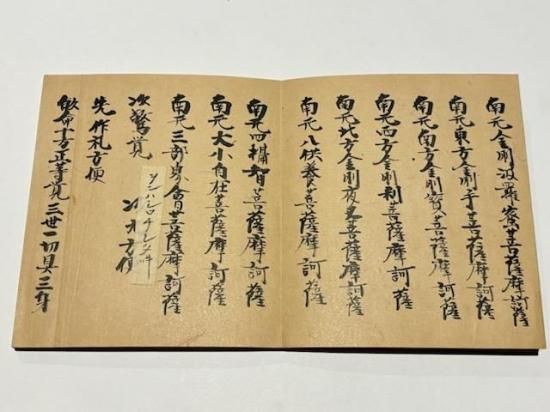 南无金剛波羅蜜菩薩摩訶薩
南无東方金剛手菩薩摩訶薩
南无南方金剛寶菩薩摩訶薩
南无西方金剛利菩薩摩訶薩
南无北方金剛夜叉菩薩摩訶薩
南无八供養菩薩摩訶薩
南无四攝智菩薩摩訶薩
南无大小自在菩薩摩訶薩
南无三部界會菩薩摩訶薩
次驚覚 次九方便
先作礼方便
敀命十方正等覚 三世一切具三身